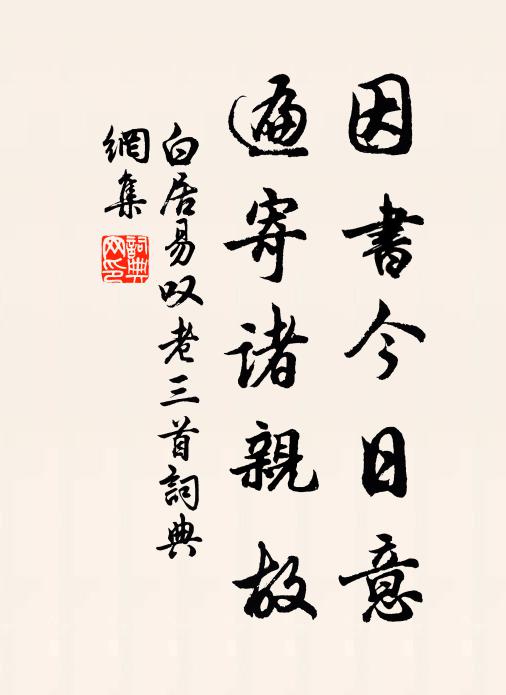 因書今日意
遍寄诸親故
白居易叹老三首詞典
網集
詞典
网印